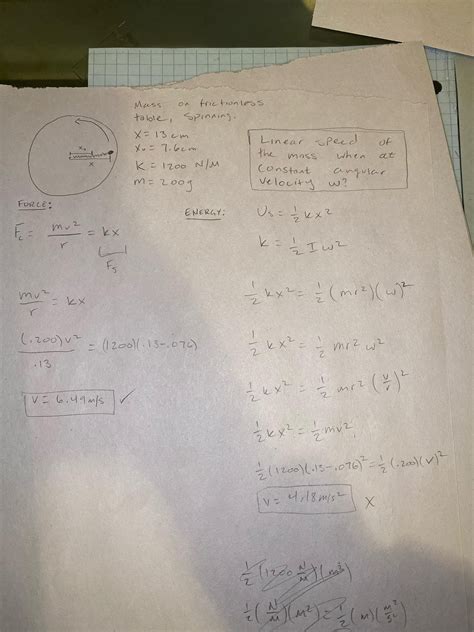 Mass on frictionless
table, spinning.
x = 13 cm
x₀ = 7.6 cm
K = 1200 N/M
m = 200g
Linear speed of
the mass when at
constant angular
velocity ω?
x₀
x
FORCE:
F_c = mv²/r = kx
F_s
mv²/r = kx
(.200)v²/.13 = (1200)(.13-.076)
v = 6.49 m/s ✓
ENERGY:
U_s = ½ kx²
k = ½ I ω²
½ kx² = ½ (mr²)(ω)²
½ kx² = ½ mr² ω²
½ kx² = ½ mr² (v/r)²
½ kx² = ½ mv²
½ (1200)(.13-.076)² = ½ (.200)(v)²
v = 4.18 m/s² X
½ (1200 N/M)
½ (N/M)(M²) = ½ (m)(m²/s²)